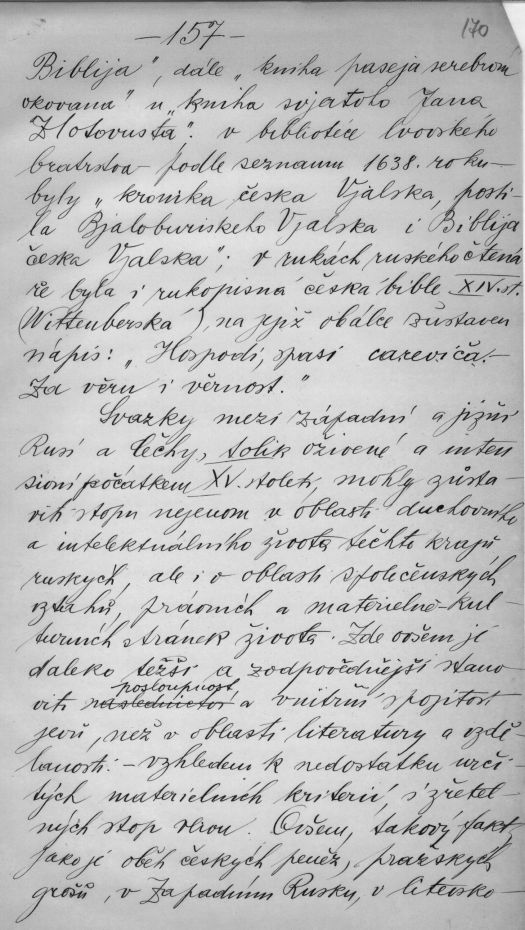 -157-
170
Biblija", dále „kniha paseja serebrom
okovana" u „kniha svjatoho Jana
Zlotovusta". v bibliotéce lvovského
bratrstva - podle seznamu 1638. roku -
byly „kronika česka Vjalska, posti-
la Bjaloburiskeho Vjalska i Biblija
česka Vjalska"; v rukách ruského čtená
ře byla i rukopisná česká bible XIV. st.
(Wittenberská), na jejíž obálce zůstaven
nápis: „Hospodi, spasi careviča! -
Za věru i věrnost."
Svazky mezi západní a jižní
Rusí a Čechy, tolik oživené a inten
sioní počátkem XV. století, mohly zůsta-
viti stopu nejenom v oblasti duchovního
a intelektuálního života těchto krajů
ruských, ale i v oblasti společenských
vztahů, právních a materielně-kul-
turních stránek života. Zde ovšem je
daleko težší a zodpovědnější stano
viti následnictví posloupnost a vnitřní spojitost
jevů, než v oblasti literatury a vzdě-
lanosti - vzhledem k nedostatku urči-
tých materielních kriterií, i zřetel-
ných stop vlivu. Ovšem, takový fakt,
jako je oběh českých peněz, pražských
grošů, v Západním Rusku, v litevsko-